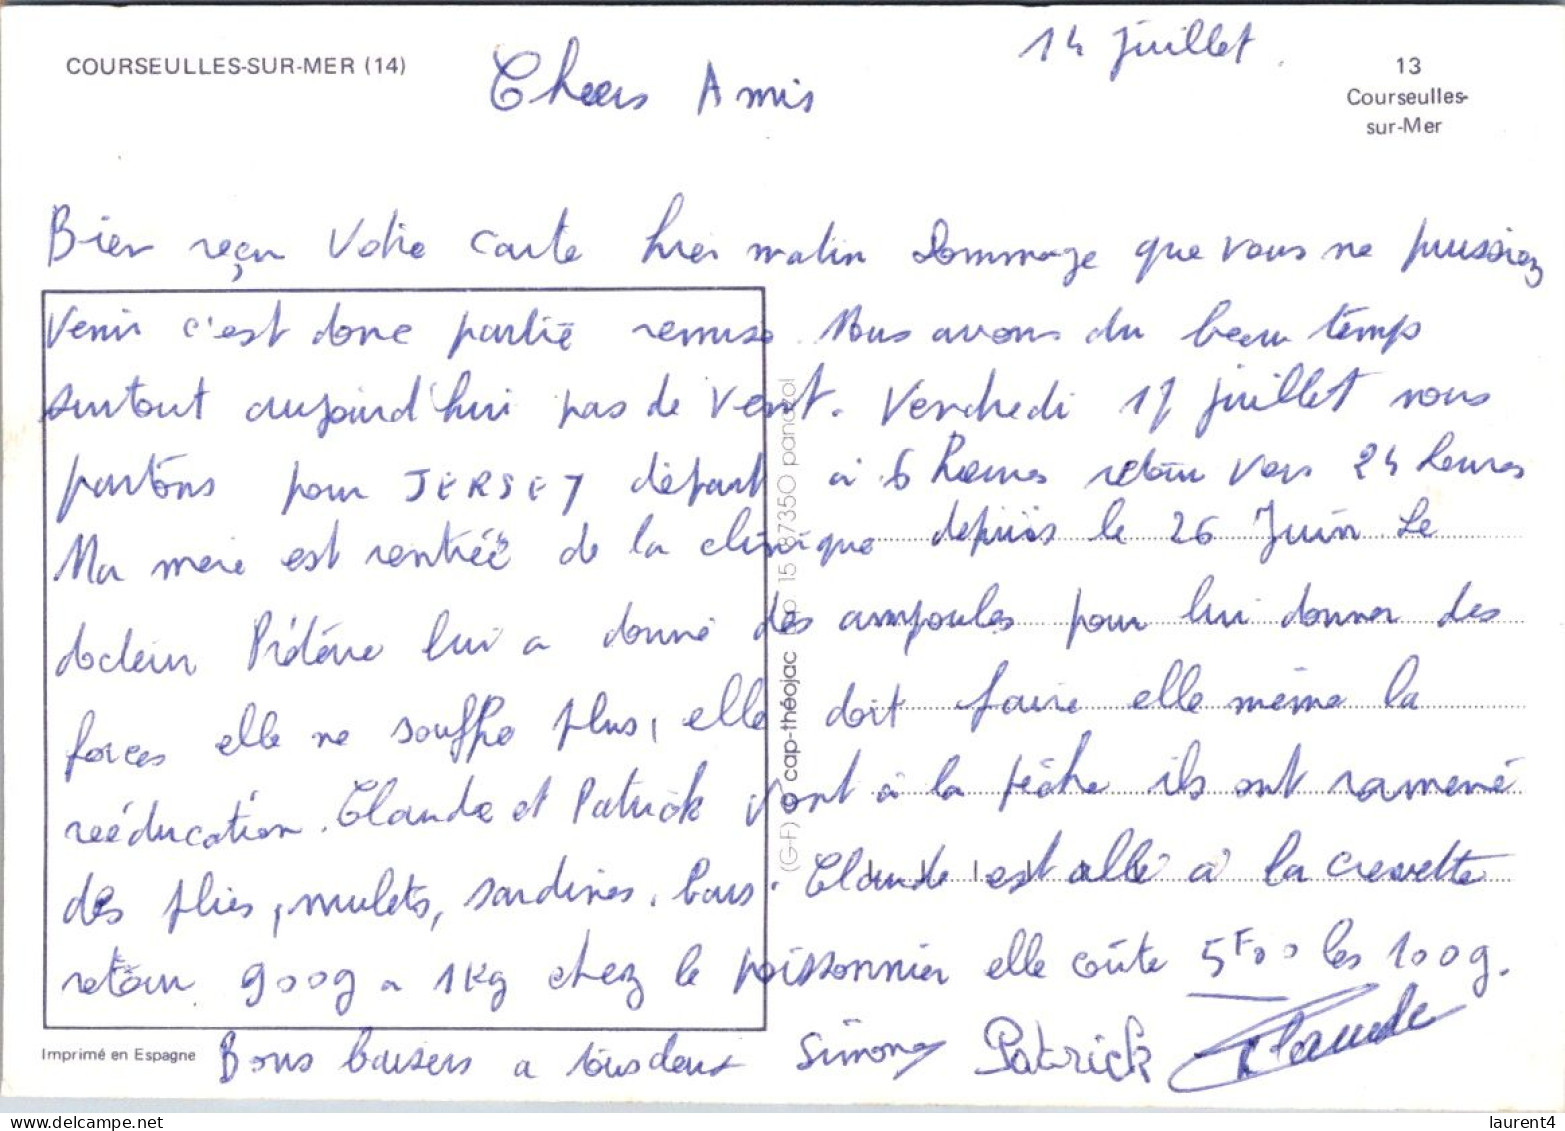 COURSEULLES-SUR-MER (14)
14 juillet.
13
Courseulles-
sur-Mer
Cheers Amis
Bien reçu Votre carte hier matin Dommage que vous ne puissiez
Venir c'est donc partie remise. Nous avons du beau temps
surtout aujourd'hui pas de vent. Vendredi 17 juillet nous
partons pour JERSEY départ à 6 heures retour vers 24 heures
Ma mere est rentrée de la clinique depuis le 26 Juin. Le
docteur lui a donné des ampoules pour lui donner des
forces elle ne souffre plus, elle doit faire elle même la
rééducation. Claude et Patrick vont à la pêche ils ont ramené
des plies, mulets, sardines, bars. Claude est allé à la crevette
retour 900g a 1kg chez le poissonnier elle coûte 5F00 les 100g.
Bons baisers a tous deux Simone Patrick Claude
Imprimé en Espagne
(G-F) cap-théojac 15 87350 panazol
laurent4